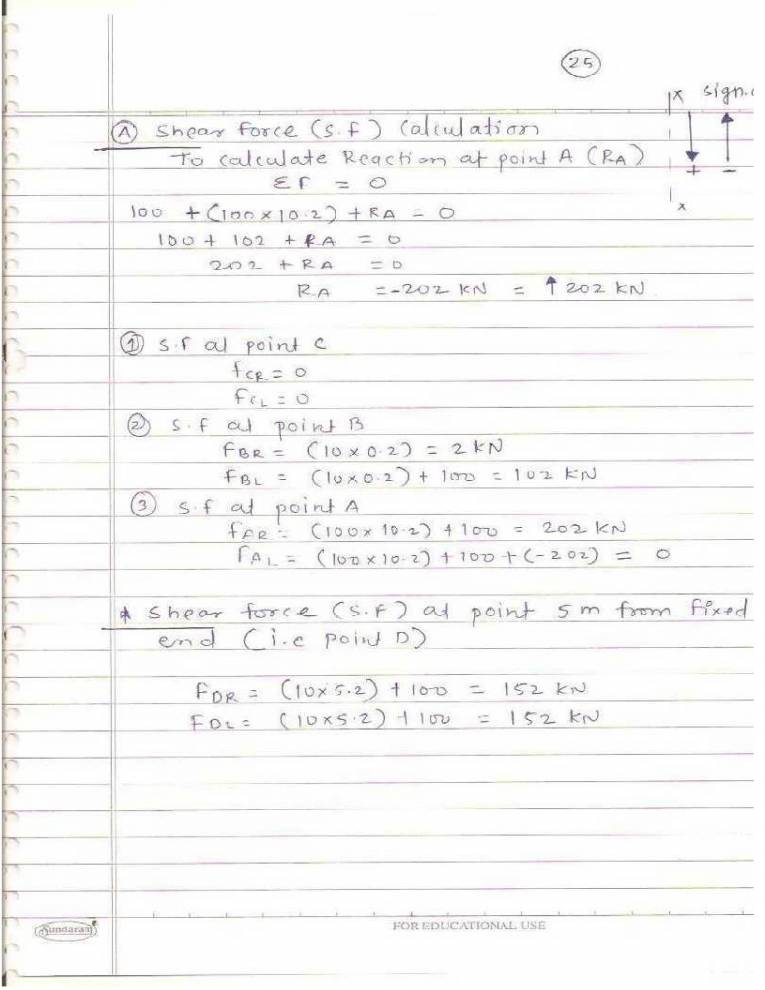 25
x sign.
Ⓐ Shear force (S.f) Calculation
To calculate Reaction at point A (RA)
+ -
ΣF = 0
x
100 + (100 × 10.2) + RA = 0
100 + 102 + RA = 0
202 + RA = 0
RA = -202 KN = ↑ 202 KN
① S.F at point C
fCR = 0
FCL = 0
② S.f at point B
FBR = (10 × 0.2) = 2 KN
FBL = (10 × 0.2) + 100 = 102 KN
③ S.f at point A
fAR = (100 × 10.2) + 100 = 202 KN
FAL = (100 × 10.2) + 100 + (-202) = 0
* Shear force (S.F) at point 5 m from fixed
end (i.e point D)
FDR = (10 × 5.2) + 100 = 152 KN
FDL = (10 × 5.2) + 100 = 152 KN
Sundaram
FOR EDUCATIONAL USE